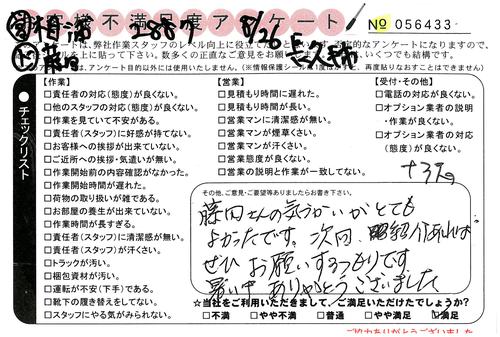 お客様不満足度アンケート № 056433
2887 8/26
アンケートは、弊社作業スタッフのレベル向上に役立て
上に貼って下さい。数多くの正直なご意見をお
アンケート目的以外には使用いたしません。(※情報保護シール
チェックリスト
【作業】
□責任者の対応(態度)が良くない。
□他のスタッフの対応(態度)が良くない。
□作業を見ていて不安がある。
□責任者(スタッフ)に好感が持てない。
□お客様への挨拶が出来ていない。
□ご近所への挨拶・気遣いが無い。
□作業開始前の内容確認がなかった。
□作業開始時間が遅れた。
□荷物の取り扱いが雑である。
□お部屋の養生が出来ていない。
□作業時間が長すぎる。
□責任者(スタッフ)に清潔感が無い。
□責任者(スタッフ)が汗くさい。
□トラックが汚い。
□梱包資材が汚い。
□運転が不安(下手)である。
□靴下の履き替えをしてない。
□スタッフにやる気がみられない。
【営業】
□見積もり時間に遅れた。
□見積もり時間が長い。
□営業マンに清潔感が無い。
□営業マンが煙草くさい。
□営業マンが汗くさい。
□営業態度が良くない。
□営業の説明と作業が一致してない。
【受付・その他】
□電話の対応が良くない。
□オプション業者の説明
・作業が良くない。
□オプション業者の対応
(態度)が良くない。
その他、ご意見・ご要望等ありましたらお書き下さい。
藤田さんの気づかいがとても
よかったです。次回、紹介あれば
ぜひお願いするつもりです
暑い中ありがとうございました
☆当社をご利用いただきまして、ご満足いただけたでしょうか?
□不満 □やや不満 □普通 □やや満足 □満足
ご協力ありがとうございました